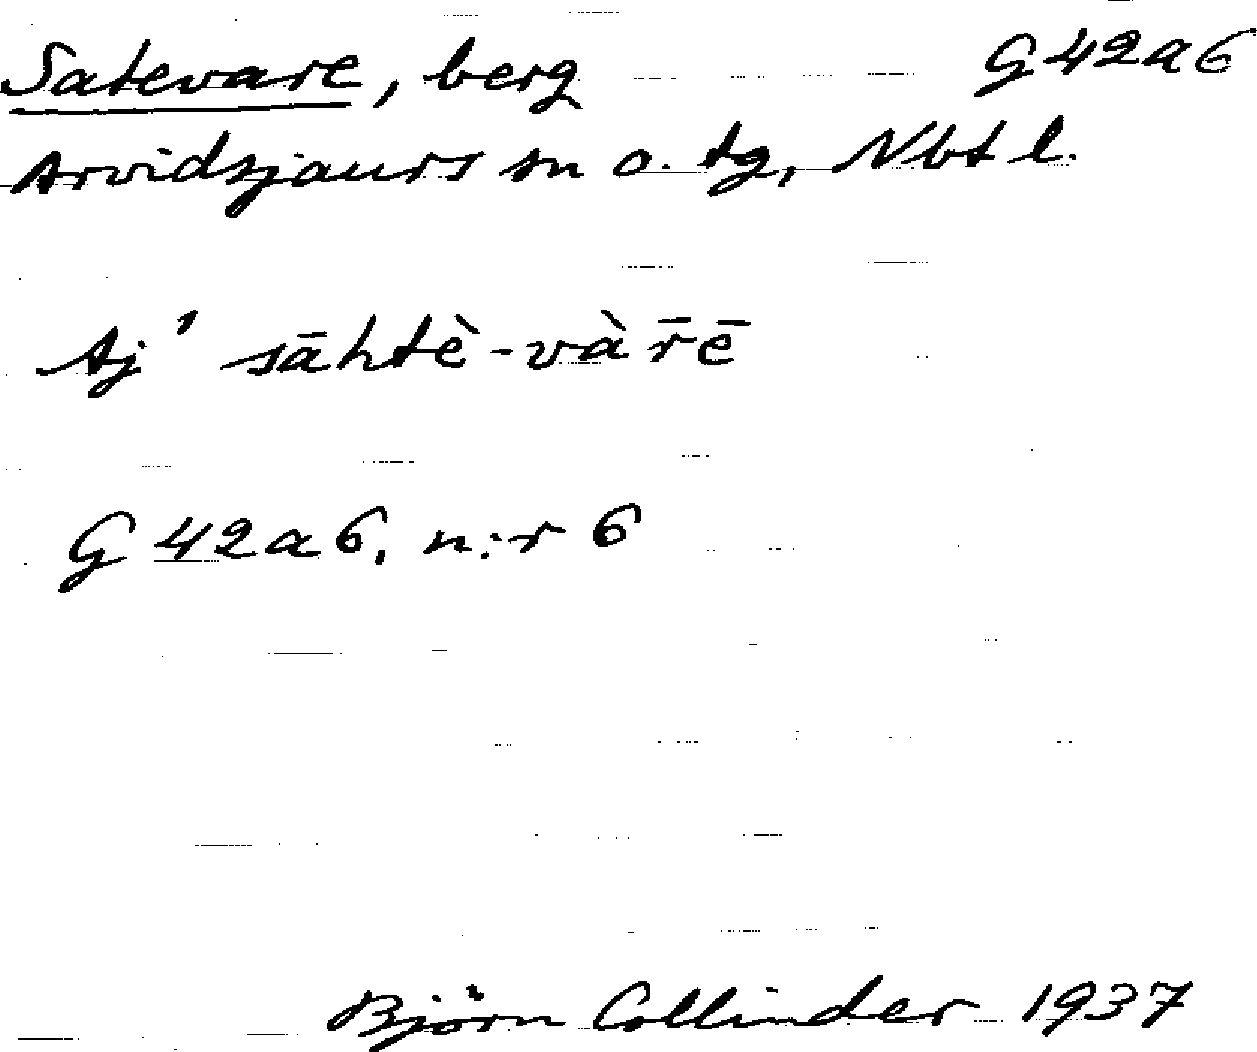 Satevare, berg G42a6
Arvidsjaurs sn o. tg, Nbt l.
Aj' sāhtè-vàr̄ē
G 42a6, n:r 6
Björn Collinder 1937